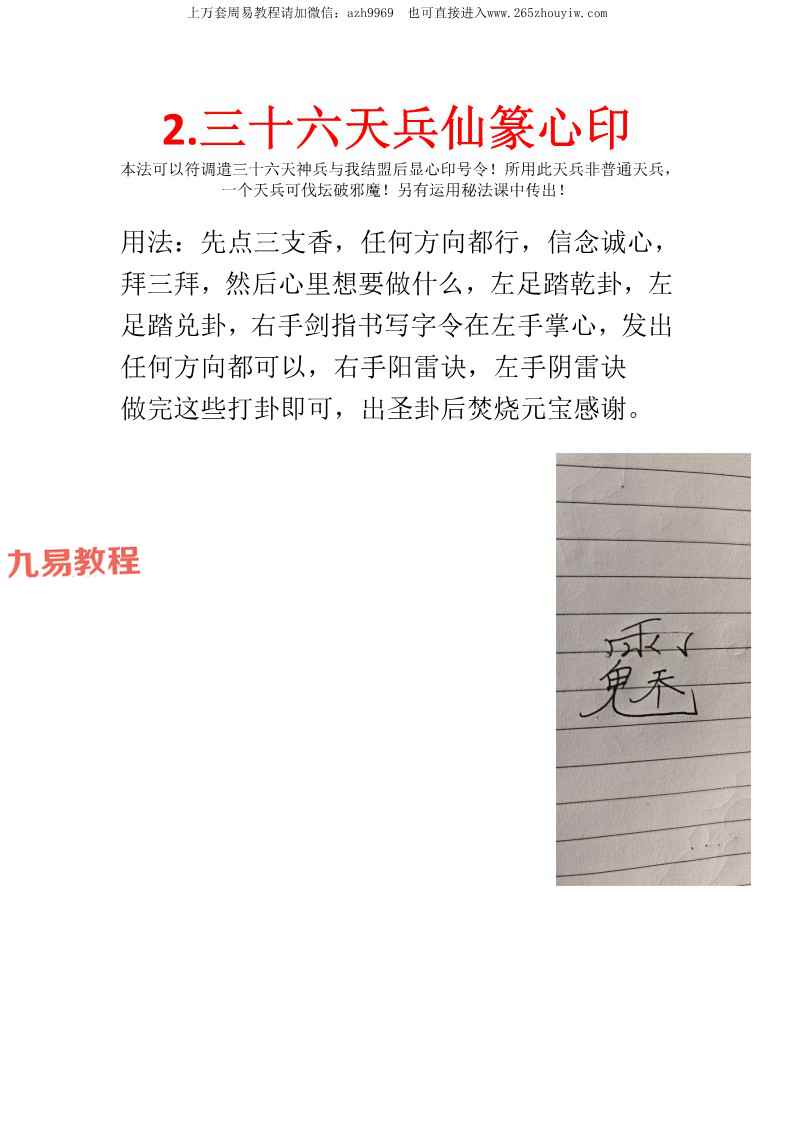 上万套周易教程请加微信：azh9969 也可直接进入www.265zhouyiw.com
2.三十六天兵仙篆心印
本法可以符调遣三十六天神兵与我结盟后显心印号令！所用此天兵非普通天兵，
一个天兵可伐坛破邪魔！另有运用秘法课中传出！
用法：先点三支香，任何方向都行，信念诚心，
拜三拜，然后心里想要做什么，左足踏乾卦，左
足踏兑卦，右手剑指书写字令在左手掌心，发出
任何方向都可以，右手阳雷诀，左手阴雷诀
做完这些打卦即可，出圣卦后焚烧元宝感谢。
九易教程